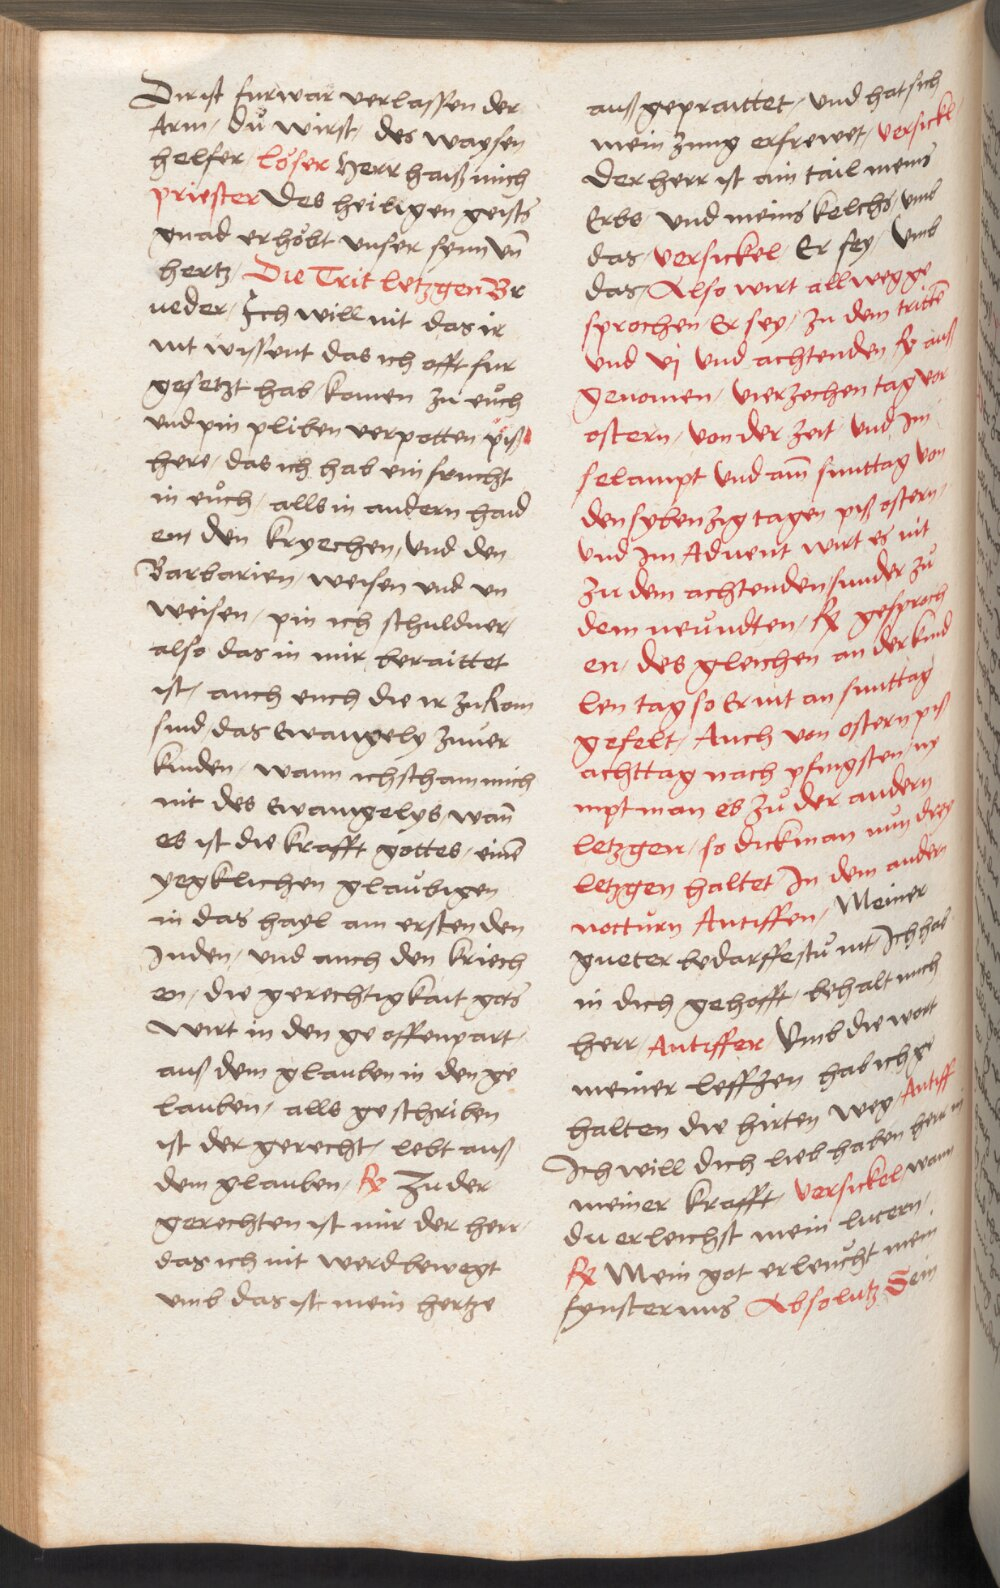 Dir ist furwar verlassen der
Arm / du̇ wirst / des waysen
helfer / loͤser Herr haiß mich
priester Des heiligen geists
gnad erhoͤbt vnser synn vn̄
hertz / Die Trit letzgen Br
ueder / Ich will nit das ir
nit wissent das ich offt fur
gesetzt hab / komen zu euͦch
vnd pin pliben verpotten piß
here / das ich hab ein frucht
in euͦch / alls in andern haid
en den Kryechen / vnd den
Barbarien / weisen vnd vn
weisen / pin ich schuldner /
also das in mir beraittet
ist / auch euch die ir zu Rom
sind das Ewangely zuuer
kinden / wann ich scham mich
nit des Ewangelys wan̄
es ist die krafft gottes / einē
yegklichen glaubigen
in das hayl am ersten den
Juden / vnd auch den kriech
en / die gerechtigkait gots
wirt in den geoffenpart /
auß dem glauben in den ge
lauben / alls geschriben
ist der gerecht / lebt auß
dem glauben / R Zu der
gerechten ist mir der herr /
das ich nit werd bewegt
vmb das ist mein hertze
auß gepraittet / vnd hat sich
mein zung erfrewet / versickl /
Der herr ist ain tail meins
Erbs vnd meins kelchs / vmb
das / versickel / Er sey / vmb
das / Also wirt allweg ge
sprochen Er sey / zu dem trittē
vnd vj vnd achtenden R auß
genomen / vierzechen tag vor
ostern / von der zeit vnd Im
selampt vnd am̄ sunttag von
den sybenzig tagen piß ostern /
vnd Im Aduent wirt es nit
zu dem achtenden sunder zu̇
dem neu̇ndten / R gesproch
en / des gleichen an der kind
len tag so Er nit an sunttag
gefelt / Auch von ostern piß
achttag nach pfingsten / ny
mpt man es zu̇ der andern
letzgen / so dick man nun drey
letzgen haltet In dem andern
notturn Antiffen / Meiner
gueter bedarffestu̇ nit / Ich hab
in dich gehofft / behalt mich
herr / Antiffer Vmb die wort
meiner leffzen hab ich ge
halten die hirten weg / Antiff
Ich will dich lieb haben herr in
meiner krafft / versickel / wann
du erleichst mein lucern /
R Mein got erleu̇cht mein
fynsternus Absolutz Sein